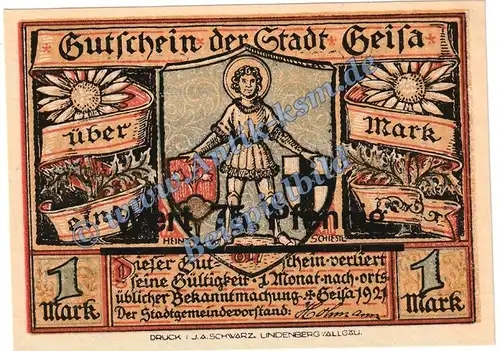 Gutschein der Stadt Geisa
über Mark
eine
Wert 75 Pfennig
www.Antik-ksm.de
Beispielbild
HEIN SCHIESTL
Dieser Gut-schein verliert
seine Gültigkeit 1 Monat nach orts-
üblicher Bekanntmachung. Geisa 1921
Der Stadtgemeindevorstand:
1 Mark
1 Mark
DRUCK: J.A. SCHWARZ, LINDENBERG/ALLGÄU.